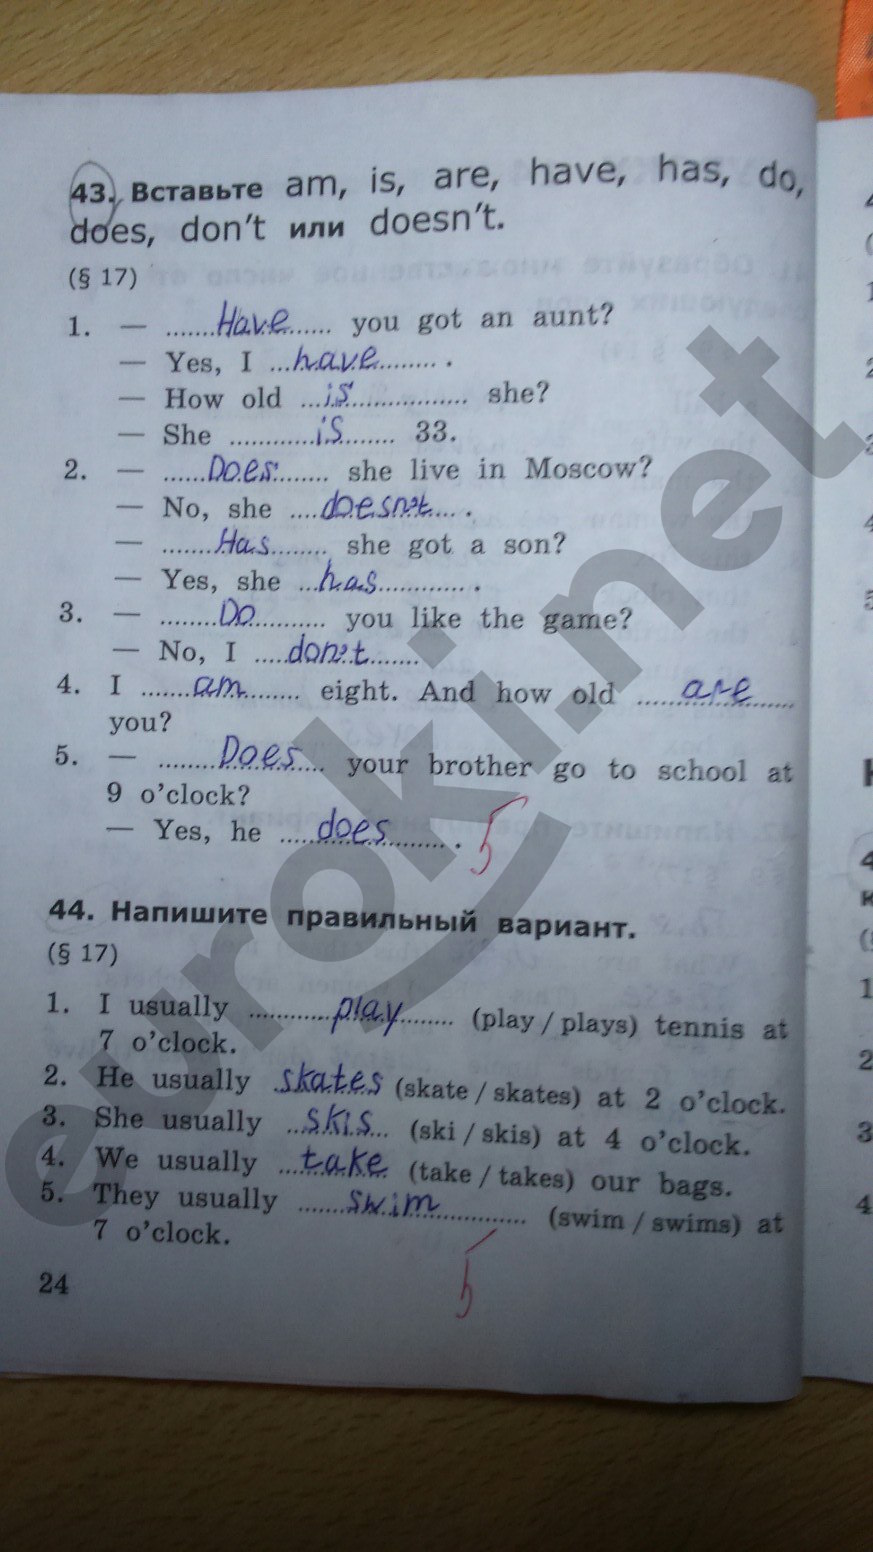 43. Вставьте am, is, are, have, has, do,
does, don't или doesn't.
(§ 17)
1. — .......Have...... you got an aunt?
— Yes, I ...have........ .
— How old ...is................ she?
— She ............is........ 33.
2. — ......Does....... she live in Moscow?
— No, she ....doesn't.... .
— .......Has........ she got a son?
— Yes, she ...has............. .
3. — ........Do.......... you like the game?
— No, I ....don't.......
4. I .......am......... eight. And how old .......are......
you?
5. — ........Does.... your brother go to school at
9 o'clock?
— Yes, he .....does........ .
5
44. Напишите правильный вариант.
(§ 17)
1. I usually ............play........ (play / plays) tennis at
7 o'clock.
2. He usually .skates (skate / skates) at 2 o'clock.
3. She usually ...skis... (ski / skis) at 4 o'clock.
4. We usually ....take. (take / takes) our bags.
5. They usually .......swim............. (swim / swims) at
7 o'clock.
5
24
euroki.net